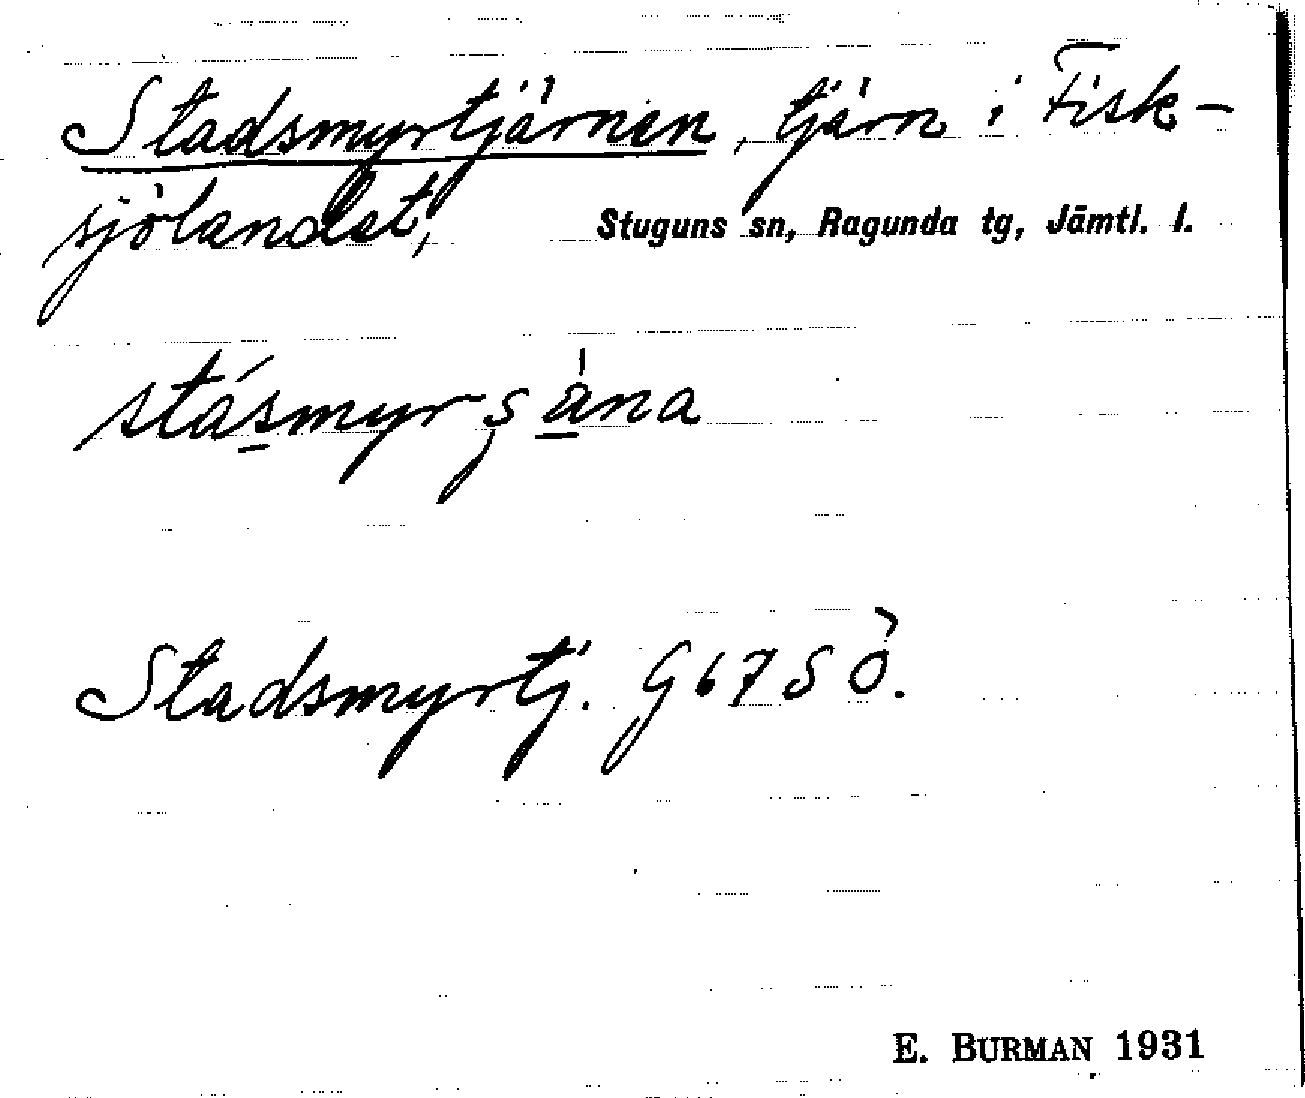 Stadsmyrtjärnen, tjärn i Fisk-
sjölandet, Stuguns sn, Ragunda tg, Jämtl. l.
stásmyrşäna
Stadsmyrtj. G67SÖ.
E. BURMAN 1931